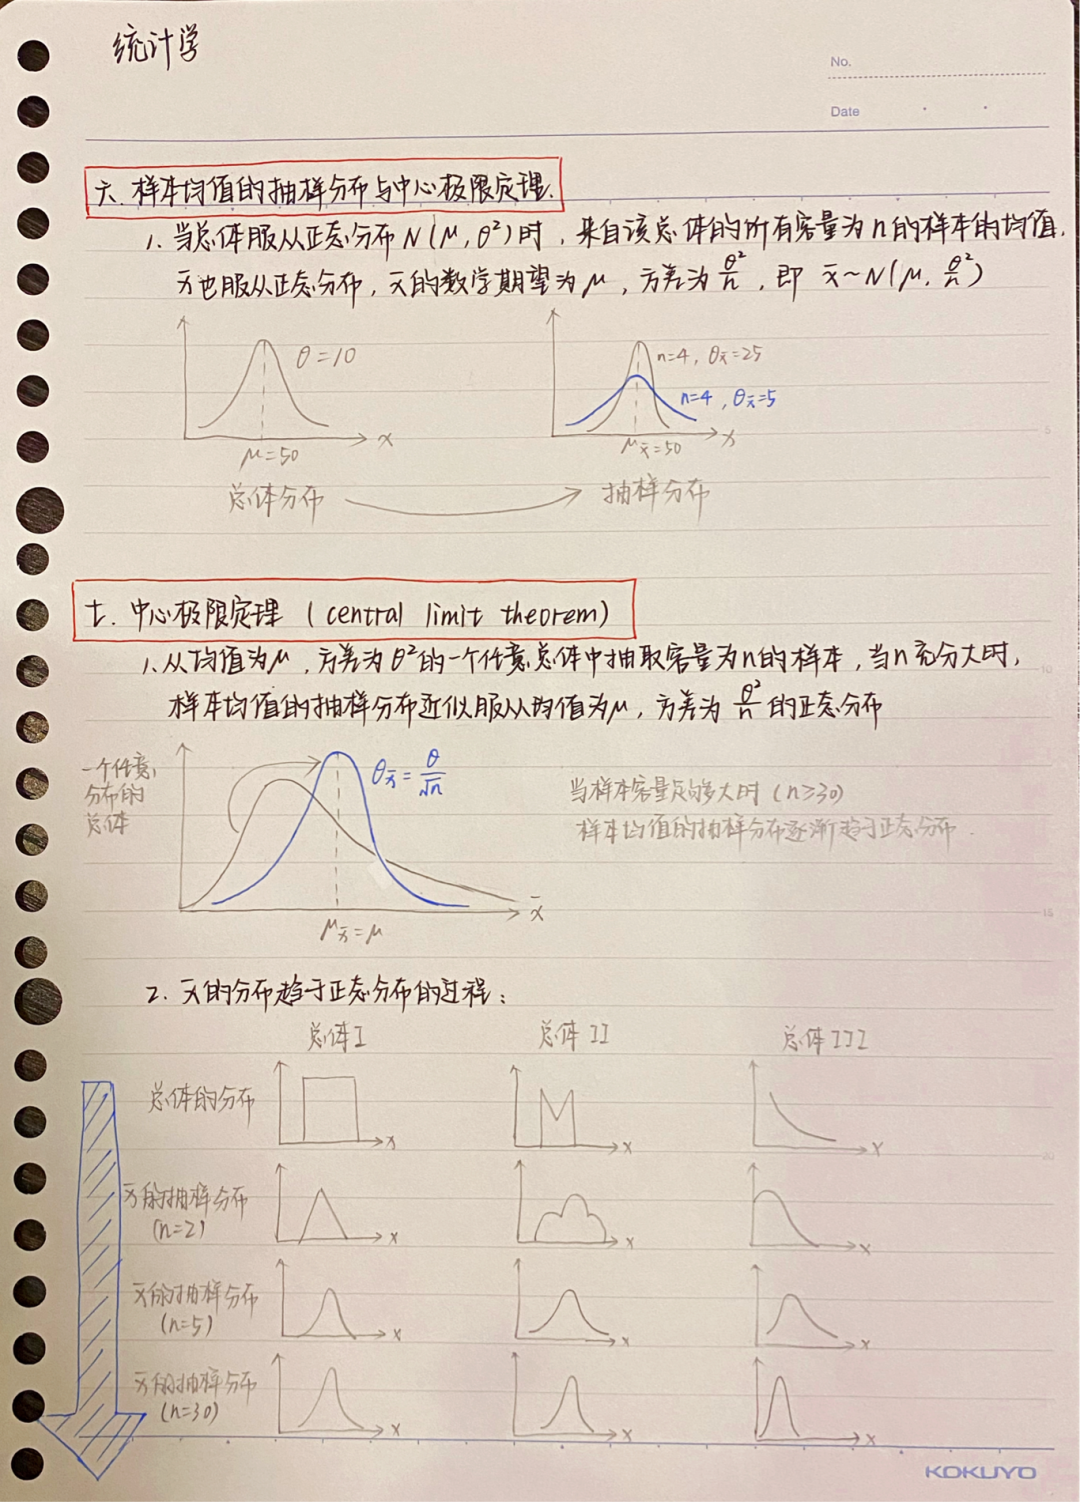 统计学
No.
Date
六. 样本均值的抽样分布与中心极限定理.
1. 当总体服从正态分布N(μ, θ²)时, 来自该总体的所有容量为n的样本的均值.
x̄也服从正态分布, x̄的数学期望为μ, 方差为θ²/n, 即 x̄~N(μ, θ²/n)
θ=10
x
μ=50
总体分布
n=4, θx̄=25
n=4, θx̄=5
x̄
μx̄=50
抽样分布
七. 中心极限定理 (central limit theorem)
1. 从均值为μ, 方差为θ²的一个任意总体中抽取容量为n的样本, 当n充分大时,
样本均值的抽样分布近似服从均值为μ, 方差为θ²/n的正态分布
一个任意
分布的
总体
θx̄=θ/√n
x̄
μx̄=μ
当样本容量足够大时 (n≥30)
样本均值的抽样分布逐渐趋于正态分布.
2. x̄的分布趋于正态分布的过程:
总体I 总体II 总体III
总体的分布 x x x
x̄的抽样分布 x̄ x̄ x̄
(n=2)
x̄的抽样分布 x̄ x̄ x̄
(n=5)
x̄的抽样分布 x̄ x̄ x̄
(n=30)
5
10
15
20
KOKUYO